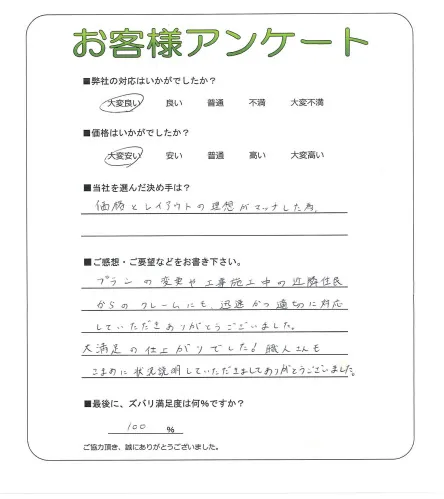 お客様アンケート
■弊社の対応はいかがでしたか？
大変良い 良い 普通 不満 大変不満
■価格はいかがでしたか？
大変安い 安い 普通 高い 大変高い
■当社を選んだ決め手は？
価格とレイアウトの理想がマッチした為。
■ご感想・ご要望などをお書き下さい。
プランの変更や工事施工中の近隣住民
からのクレームにも、迅速かつ適切に対応
していただきありがとうございました。
大満足の仕上がりでした！職人さんも
こまめに状況説明していただきましてありがとうございました。
■最後に、ズバリ満足度は何％ですか？
100 ％
ご協力頂き、誠にありがとうございました。